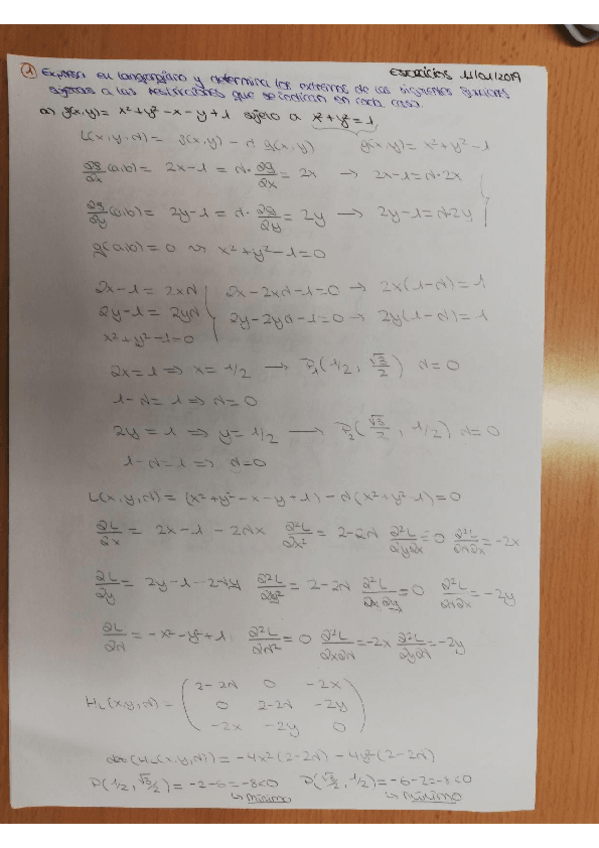 Ejercicios 11/01/2019
① Expresa el langragiano y determina los extremos de las siguientes funciones
sujetas a las restricciones que se indican en cada caso.
a) f(x,y)= x²+y²-x-y+1 sujeto a x²+y²=1
L(x,y,λ)= f(x,y)-λ g(x,y) g(x,y)= x²+y²-1
∂f/∂x (a,b)= 2x-1 = λ· ∂g/∂x = 2x → 2x-1=λ·2x
∂f/∂y (a,b)= 2y-1 = λ· ∂g/∂y = 2y → 2y-1=λ·2y
g(a,b)=0 ⇝ x²+y²-1=0
2x-1=2xλ 2x-2xλ-1=0 → 2x(1-λ)=1
2y-1=2yλ 2y-2yλ-1=0 → 2y(1-λ)=1
x²+y²-1=0
2x=1 ⇒ x=1/2 → P₁(1/2, √3/2) λ=0
1-λ=1 ⇒ λ=0
2y=1 ⇒ y=1/2 → P₂(√3/2, 1/2) λ=0
1-λ=1 ⇒ λ=0
L(x,y,λ)=(x²+y²-x-y-1)-λ(x²+y²-1)=0
∂L/∂x = 2x-1-2λx ∂²L/∂x² = 2-2λ ∂²L/∂y∂x = 0 ∂²L/∂λ∂x = -2x
∂L/∂y = 2y-1-2λy ∂²L/∂y² = 2-2λ ∂²L/∂x∂y = 0 ∂²L/∂λ∂x = -2y
∂L/∂λ = -x²-y²+1 ∂²L/∂λ² = 0 ∂²L/∂x∂λ = -2x ∂²L/∂y∂λ = -2y
2-2λ 0 -2x
H_L(x,y,λ)= 0 2-2λ -2y
-2x -2y 0
det(H_L(x,y,λ))=-4x²(2-2λ)-4y²(2-2λ)
D(1/2, √3/2)=-2-6=-8<0 D(√3/2, 1/2)=-6-2=-8<0
↳ Mínimo ↳ Mínimo